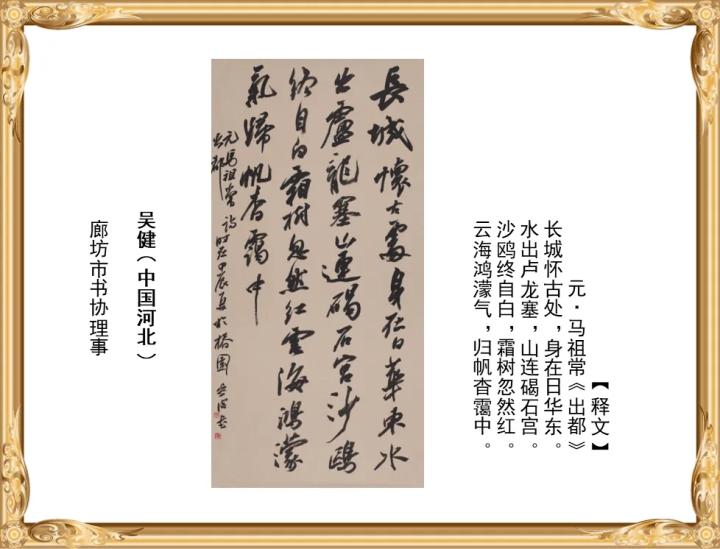 【释文】
元·马祖常《出都》
长城怀古处，身在日华东。
水出卢龙塞，山连碣石宫。
沙鸥终自白，霜树忽然红。
云海鸿濛气，归帆杳霭中。
長城懷古處身在日華東水
出盧龍塞山連碣石宮沙鷗
終自白霜樹忽然紅雲海鴻濛
氣歸帆杳靄中
元馬祖常詩
出都
吴健（中国河北）
廊坊市书协理事